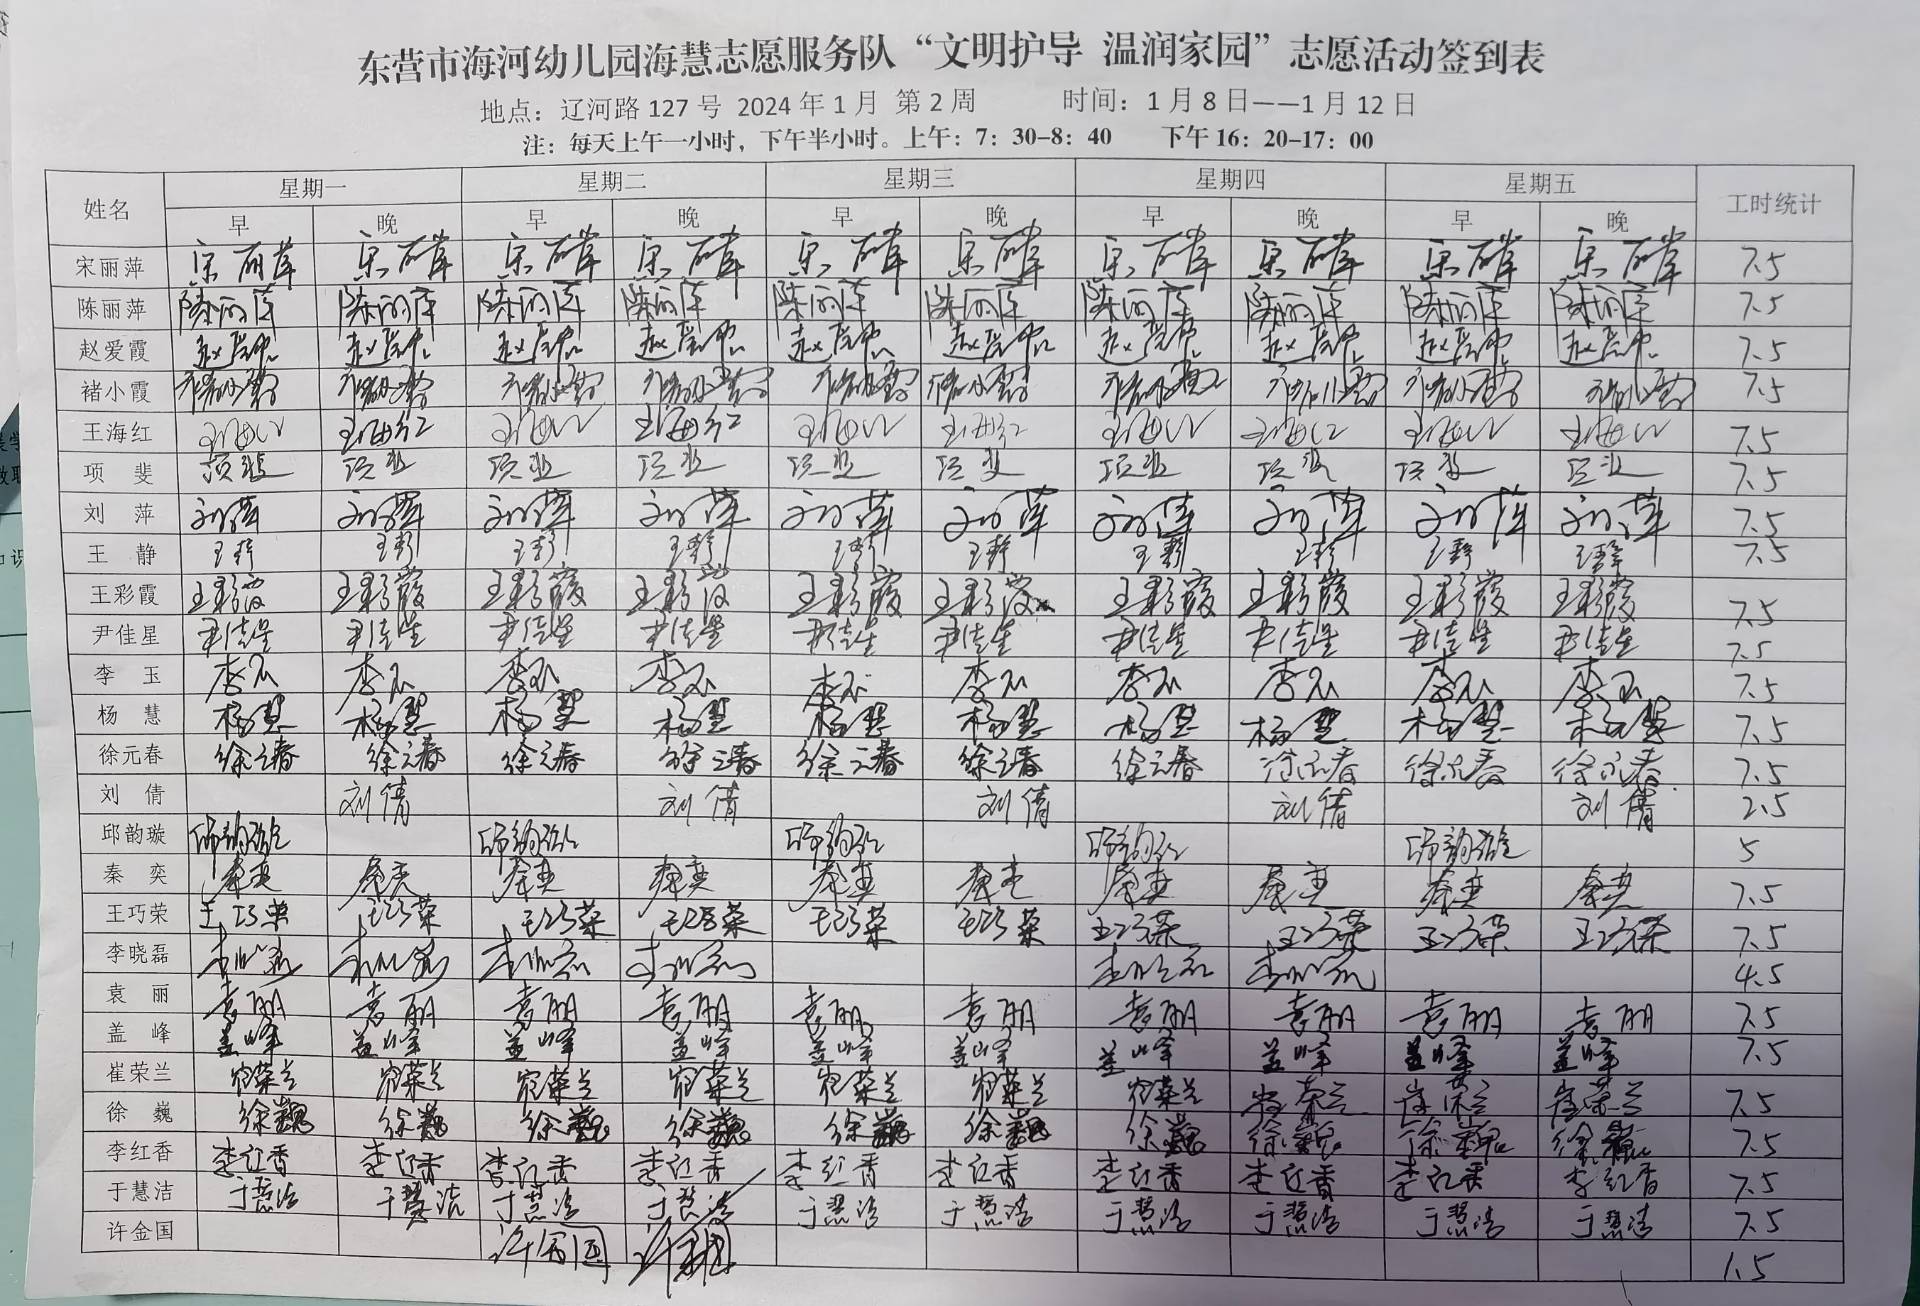 东营市海河幼儿园海慧志愿服务队“文明护导 温润家园”志愿活动签到表
地点：辽河路 127 号 2024 年 1 月 第 2 周 时间：1 月 8 日——1 月 12 日
注：每天上午一小时，下午半小时。上午：7：30-8：40 下午 16：20-17：00
姓名 星期一 星期二 星期三 星期四 星期五 工时统计
早 晚 早 晚 早 晚 早 晚 早 晚
宋丽萍 宋丽萍 宋丽萍 宋丽萍 宋丽萍 宋丽萍 宋丽萍 宋丽萍 宋丽萍 宋丽萍 宋丽萍 7.5
陈丽萍 陈丽萍 陈丽萍 陈丽萍 陈丽萍 陈丽萍 陈丽萍 陈丽萍 陈丽萍 陈丽萍 陈丽萍 7.5
赵爱霞 赵爱霞 赵爱霞 赵爱霞 赵爱霞 赵爱霞 赵爱霞 赵爱霞 赵爱霞 赵爱霞 赵爱霞 7.5
褚小霞 褚小霞 褚小霞 褚小霞 褚小霞 褚小霞 褚小霞 褚小霞 褚小霞 褚小霞 褚小霞 7.5
王海红 王海红 王海红 王海红 王海红 王海红 王海红 王海红 王海红 王海红 王海红 7.5
项 斐 项斐 项斐 项斐 项斐 项斐 项斐 项斐 项斐 项斐 项斐 7.5
刘 萍 刘萍 刘萍 刘萍 刘萍 刘萍 刘萍 刘萍 刘萍 刘萍 刘萍 7.5
王 静 王静 王静 王静 王静 王静 王静 王静 王静 王静 王静 7.5
王彩霞 王彩霞 王彩霞 王彩霞 王彩霞 王彩霞 王彩霞 王彩霞 王彩霞 王彩霞 王彩霞 7.5
尹佳星 尹佳星 尹佳星 尹佳星 尹佳星 尹佳星 尹佳星 尹佳星 尹佳星 尹佳星 尹佳星 7.5
李 玉 李玉 李玉 李玉 李玉 李玉 李玉 李玉 李玉 李玉 李玉 7.5
杨 慧 杨慧 杨慧 杨慧 杨慧 杨慧 杨慧 杨慧 杨慧 杨慧 杨慧 7.5
徐元春 徐元春 徐元春 徐元春 徐元春 徐元春 徐元春 徐元春 徐元春 徐元春 徐元春 7.5
刘 倩 刘倩 刘倩 刘倩 刘倩 刘倩 2.5
邱韵璇 邱韵璇 邱韵璇 邱韵璇 邱韵璇 邱韵璇 5
秦 奕 秦奕 秦奕 秦奕 秦奕 秦奕 秦奕 秦奕 秦奕 秦奕 秦奕 7.5
王巧荣 王巧荣 王巧荣 王巧荣 王巧荣 王巧荣 王巧荣 王巧荣 王巧荣 王巧荣 王巧荣 7.5
李晓磊 李晓磊 李晓磊 李晓磊 李晓磊 李晓磊 李晓磊 4.5
袁 丽 袁丽 袁丽 袁丽 袁丽 袁丽 袁丽 袁丽 袁丽 袁丽 袁丽 7.5
盖 峰 盖峰 盖峰 盖峰 盖峰 盖峰 盖峰 盖峰 盖峰 盖峰 盖峰 7.5
崔荣兰 崔荣兰 崔荣兰 崔荣兰 崔荣兰 崔荣兰 崔荣兰 崔荣兰 崔荣兰 崔荣兰 崔荣兰 7.5
徐 巍 徐巍 徐巍 徐巍 徐巍 徐巍 徐巍 徐巍 徐巍 徐巍 徐巍 7.5
李红香 李红香 李红香 李红香 李红香 李红香 李红香 李红香 李红香 李红香 李红香 7.5
于慧洁 于慧洁 于慧洁 于慧洁 于慧洁 于慧洁 于慧洁 于慧洁 于慧洁 于慧洁 于慧洁 7.5
许金国 许金国 许金国 1.5